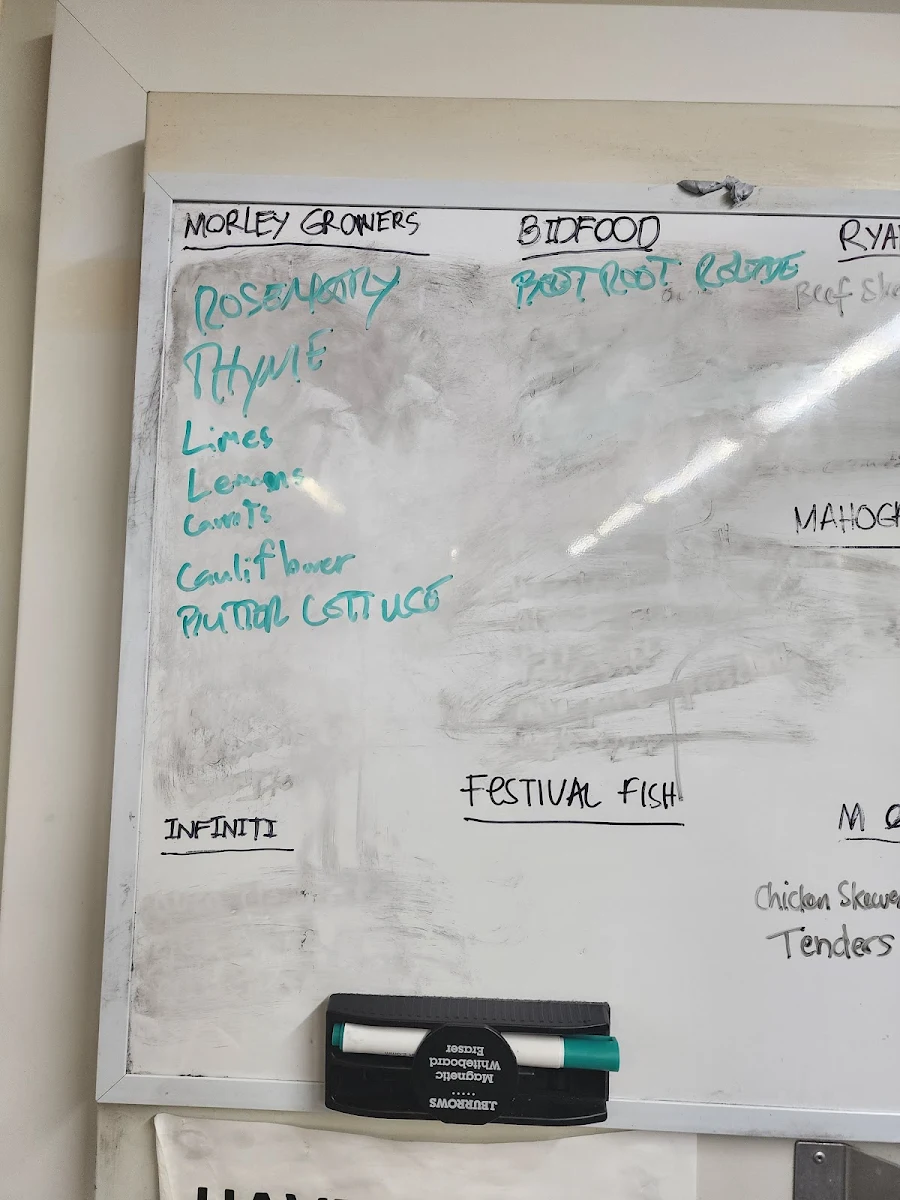 MORLEY GROWERS
ROSEMARY
THYME
Limes
Lemons
Carrots
Cauliflower
BUTTER LETTUCE
BIDFOOD
BEETROOT RELISH
RYA
Beef Ske
MAHOGA
INFINITI
FESTIVAL FISH
M
Chicken Skewe
Tenders
J.BURROWS
Magnetic
Whiteboard
Eraser
HAV